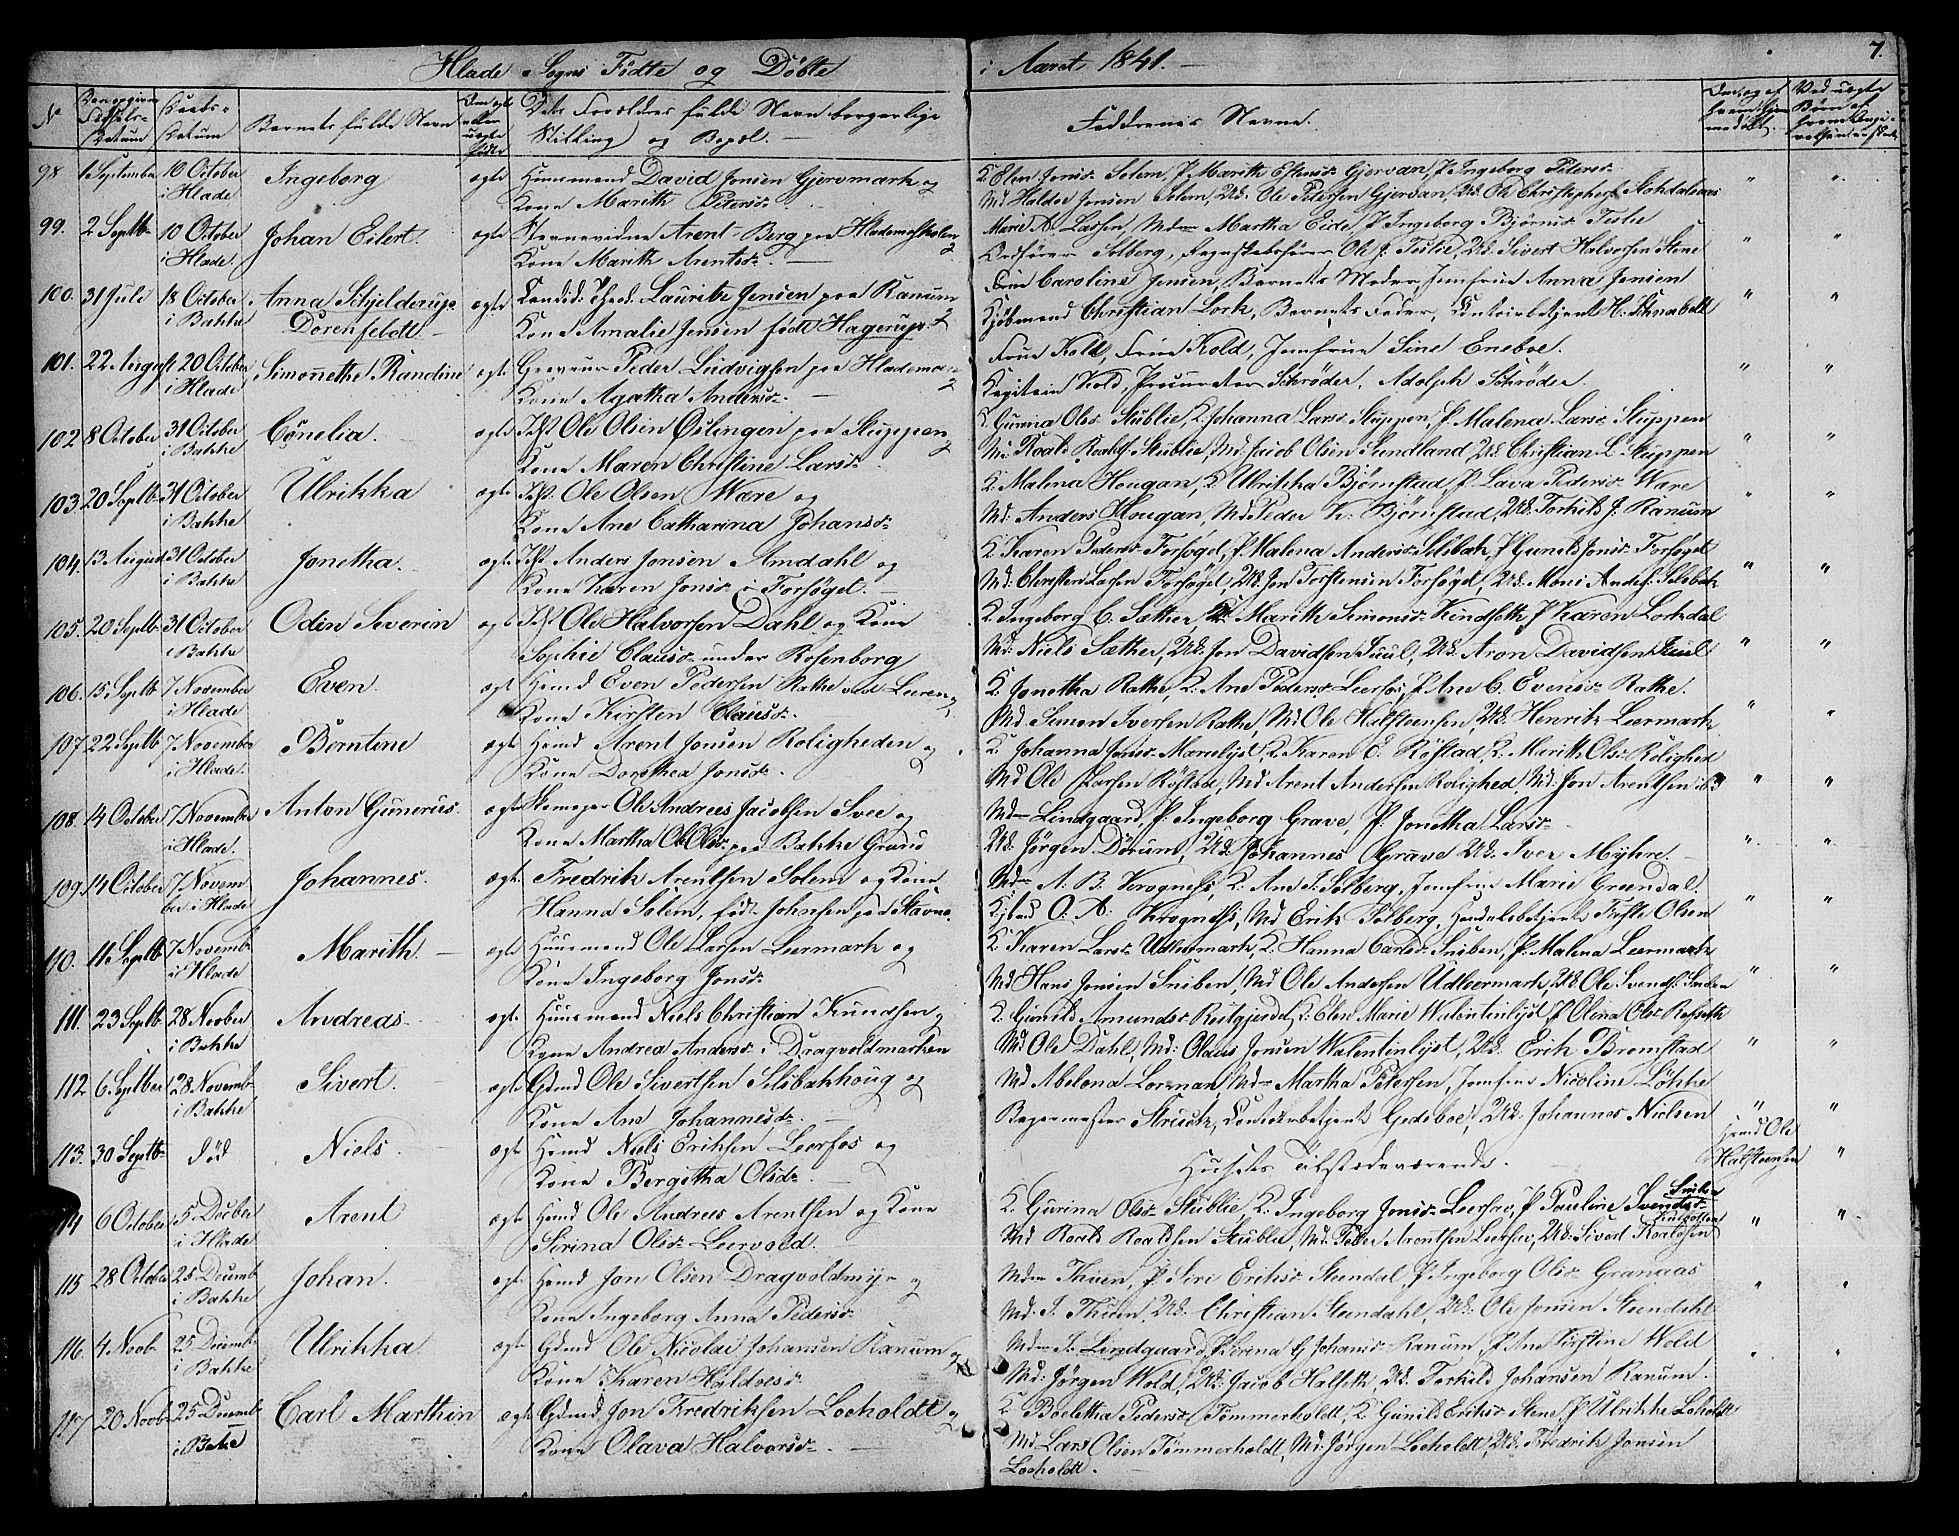 Hlade Sogns Fødte og Døbte i Aaret 1841. 7.
No Barnets fulde Navn Stilling og Bopæl. Faddernes Navne.
98 1 September 10 October i Hlade Ingeborg ægte Huusmand David Jonsen Gjervmark og
Kone Marith Peders:
Md Haldo Jonsen Solem, Uk. Ole Pedersen Gjervan,
99. 2 Septb 10 October i Hlade. Johan Eilert. ægte Arent Berg paa
Kone Marith Arentsd:
Solberg, Ole J. Teslie, Uk. Sivert Halvorsen Stene
100. 31 Juli 18 October i Bakke Anna Schjelderup Dorenfeldt ægte Candid: Theol. Lauritz Jensen paa Ranum
Kone Amalie Jensen født Hagerup
Frue Caroline Jensen, Barnets Moder, Jomfrue Anna Jensen
Kjøbmand Christian Lork, Barnets Fader, H. Schnabell
101. 22 August 20 October i Hlade Simonethe Randine ægte Peder Ludvigsen paa
Kone Agatha Andersd:
Frue Kold, Frue Kold, Jomfrue Sine Eneboe.
Kapitain Kold, Procurator Schrøder, Adolph Schrøder.
102 8 October 31 October i Bakke Cornelia. ægte Ole Olsen Øslingen paa Stuppen
Kone Maren Christine Larsd:
K. Gurina Olsd: Stublie, K. Johanna Larsd: Stuppen, P. Malena Larsd: Stuppen
Md: Roald Roalds: Stublie, Md. Jacob Olsen Sundland, Uk Christian L. Stuppen
103 20 Septb 31 October i Bakke Ulrikka ægte Ole Olsen Wære og
Kone Ane Catharina Johansd:
K. Malena Hougan, K Ulrikka Bjørnstad, P. Lava Pedersd: Ware
Md: Anders Hougan, Md Peder K. Bjørnstad, Uk. Torkild J. Ranum
104. 13 August 31 October i Bakke Jonetha. ægte Anders Jonsen Amdahl og
Kone Karen Jonsd: i Forsøget.
K. Karen Pedersd: Forsøget, P. Malena Andersd: Solsbak, P Gunild Jonsd: Forsøget
Md: Christen Larsen Forsøget, Uk Jon Torstensen Forsøget, Uk. Moni Anders: Solsbak
105. 20 Septb 31 October i Bakke Odin Severin ægte Ole Halvorsen Dahl og Kone
Sophie Clausd: under Rosenborg
K. Ingeborg C. Sæther, K. Marith Simonsd: Kindseth P Karen Lockdal
Md: Niels Sæther, Uk. Jon Davidsen Juul, Uk. Aron Davidsen Juul
106. 15 Septb 7 November i Hlade Even. ægte Hmd Even Pedersen Rathe ved Leeren
Kone Kirsten Clausd:
K. Jonetha Rathe, K. Ane Pedersd: Leerfos, P Ane C. Evensd: Rathe.
Md. Simon Iversen Rathe, Md Ole Halsteensen, Uk. Henrik Leermark
107. 22 Septb 7 November i Hlade. Berntine ægte Hmd Arent Jonsen Roligheden og
Kone Dorothea Jonsd:
K. Johanna Jonsd: Marielyst, K. Karen E. Røstad, K. Marith Olsd: Rolighed
Md Ole Larsen Røstad, Md Arent Andersen Rolighed, Md: Jon Arentsen
108. 14 October 7 November i Hlade. Anton Gunerius. ægte Ole Andreas Jacobsen Svee og
Kone Martha Olsd: paa Bakke Grund
Mdm Lindgaard, P. Ingeborg Grave, P. Jonetha Larsd:
Uk. Jørgen Dørum, Uk Johannes Grave Uk. Iver Myhre.
109. 14 October 7 November i Hlade Johannes. ægte Fredrik Arentsen Solem og Kone
Hanna Solem, født Johnsen paa Stavne.
Mdm A. B. Krogness, K. Ane J. Solberg, Jomfrue Marie Greendal.
O. A. Krogness, Md Erik Solberg, Handelsbetjent Olsen
110. 11 Septb 7 Novemb i Hlade Marith. ægte Huusmand Ole Larsen Leermark og
Kone Ingeborg Jonsd:
K. Karen Larsd: Udleermark, K. Hanna Carlsd: Sniben, P. Malena Leermark
Md Hans Jonsen Sniben, Md Ole Andersen Udleermark, Uk Ole Svends: Sniben
111. 23 Septb 28 Novber i Bakke Andreas. ægte Huusmand Niels Christian Knudsen og
Kone Andrea Andersd: i Dragvoldmarken
K. Gunild Amundsd: Reitgjerdet, K. Elen Marie Walentinlyst P Olina Olsd:
Md Ole Dahl, Md: Olaus Jonsen Walentinlyst, Uk. Erik Bromstad
112. 6 Septber 28. Novemb i Bakke Sivert. ægte Gdmd Ole Sivertsen Solsbakhoug og
Kone Ane Johannesd:
Md Abelona Lorenan, Mdm Martha Petersen, Jomfrue Nicoline Løkke
Bagermester Strusch, Contoirbetjent Gedsboe, Uk. Johannes Nielsen
113. 30 Septb død Niels. ægte Hmd Niels Eriksen Leerfos og
Kone Bergitha Olsd:
Husets Tilstædeværende. Hmd Ole Halsteensen
114 6 October 5 Decber i Hlade Arent ægte Hmd Ole Andreas Arentsen og Kone
Serina Olsd: Leervold.
K. Gurina Olsd: Stublie, K. Ingeborg Jonsd: Leerfos, P Pauline Svendsd: Sniben
Md Roald Roaldsen Stublie, Md. Peder Arentsen Leerfos, Uk: Sivert Roaldsen
115 28 October 25 Decemb i Bakke Johan. ægte Hmd Jon Olsen Dragvoldmyr og
Kone Ingeborg Anna Pedersd:
Mdm Thuen, P. Siri Eriksd: Steendal, P Ingeborg Olsd: Granaas
Md. J. Thuen, Uk. Christian Steendahl, Uk. Ole Jonsen Steendahl
116. 4 Novb 25 Decemb i Bakke Ulrikka ægte Gdmd Ole Nicolai Johansen Ranum og
Kone Karen Haldosd:
Mdm S. Lindgaard, P. Serina G Johansd: Ranum, P. Ane Kirstine Wold
Md: Jørgen Wold, Uk: Jacob Halseth, Uk. Torkild Johansen Ranum.
117 20 Novb 25 Decemb i Bakke Carl Marthin ægte Gdmd Jon Fredriksen Loeholdt og
Kone Olava Halvorsd:
K. Boeletha Pedersd: Tømmerholdt, K: Gunild Eriksd: Stene, P Ulrikke Loholdt
Md Lars Olsen Tømmerholdt, Md: Jørgen Loeholdt, Uk Fredrik Jonsen
Loeholdt.